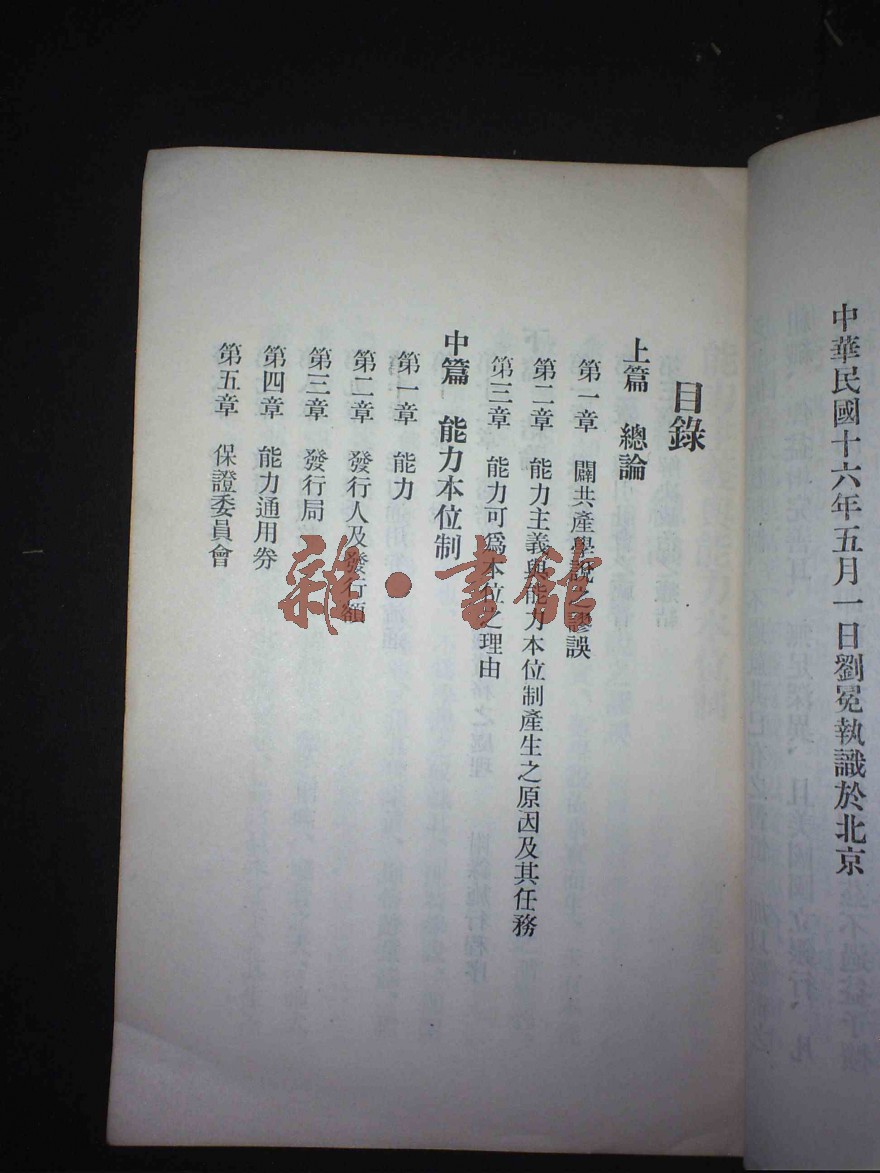 中華民國十六年五月一日劉冕執識於北京
目錄
上篇 總論
第一章 闢共產學說之謬誤
第二章 能力主義與能力本位制產生之原因及其任務
第三章 能力可爲本位之理由
中篇 能力本位制
第一章 能力
第二章 發行人及發行額
第三章 發行局
第四章 能力通用券
第五章 保證委員會
雜·書館